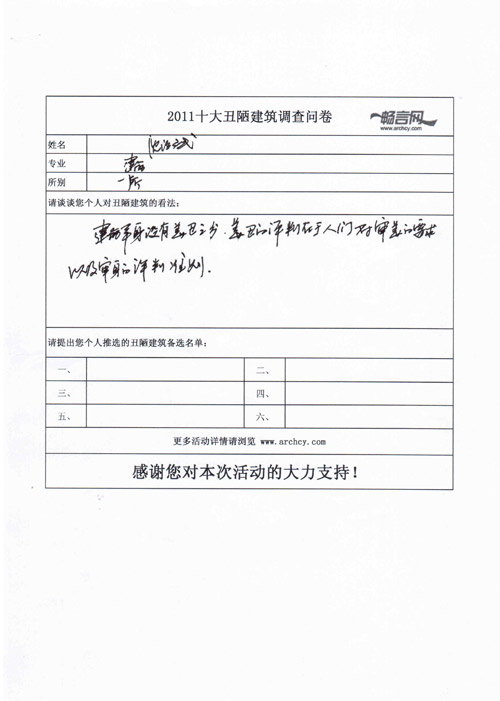 2011十大丑陋建筑调查问卷
畅言网
www.archcy.com
姓名
专业 建筑
所别 一所
请谈谈您个人对丑陋建筑的看法：
建筑本身没有美丑之分．美丑的评判在于人们对审美的需求
以及审美的评判准则．
请提出您个人推选的丑陋建筑备选名单：
一、 二、
三、 四、
五、 六、
更多活动详情请浏览 www.archcy.com
感谢您对本次活动的大力支持！